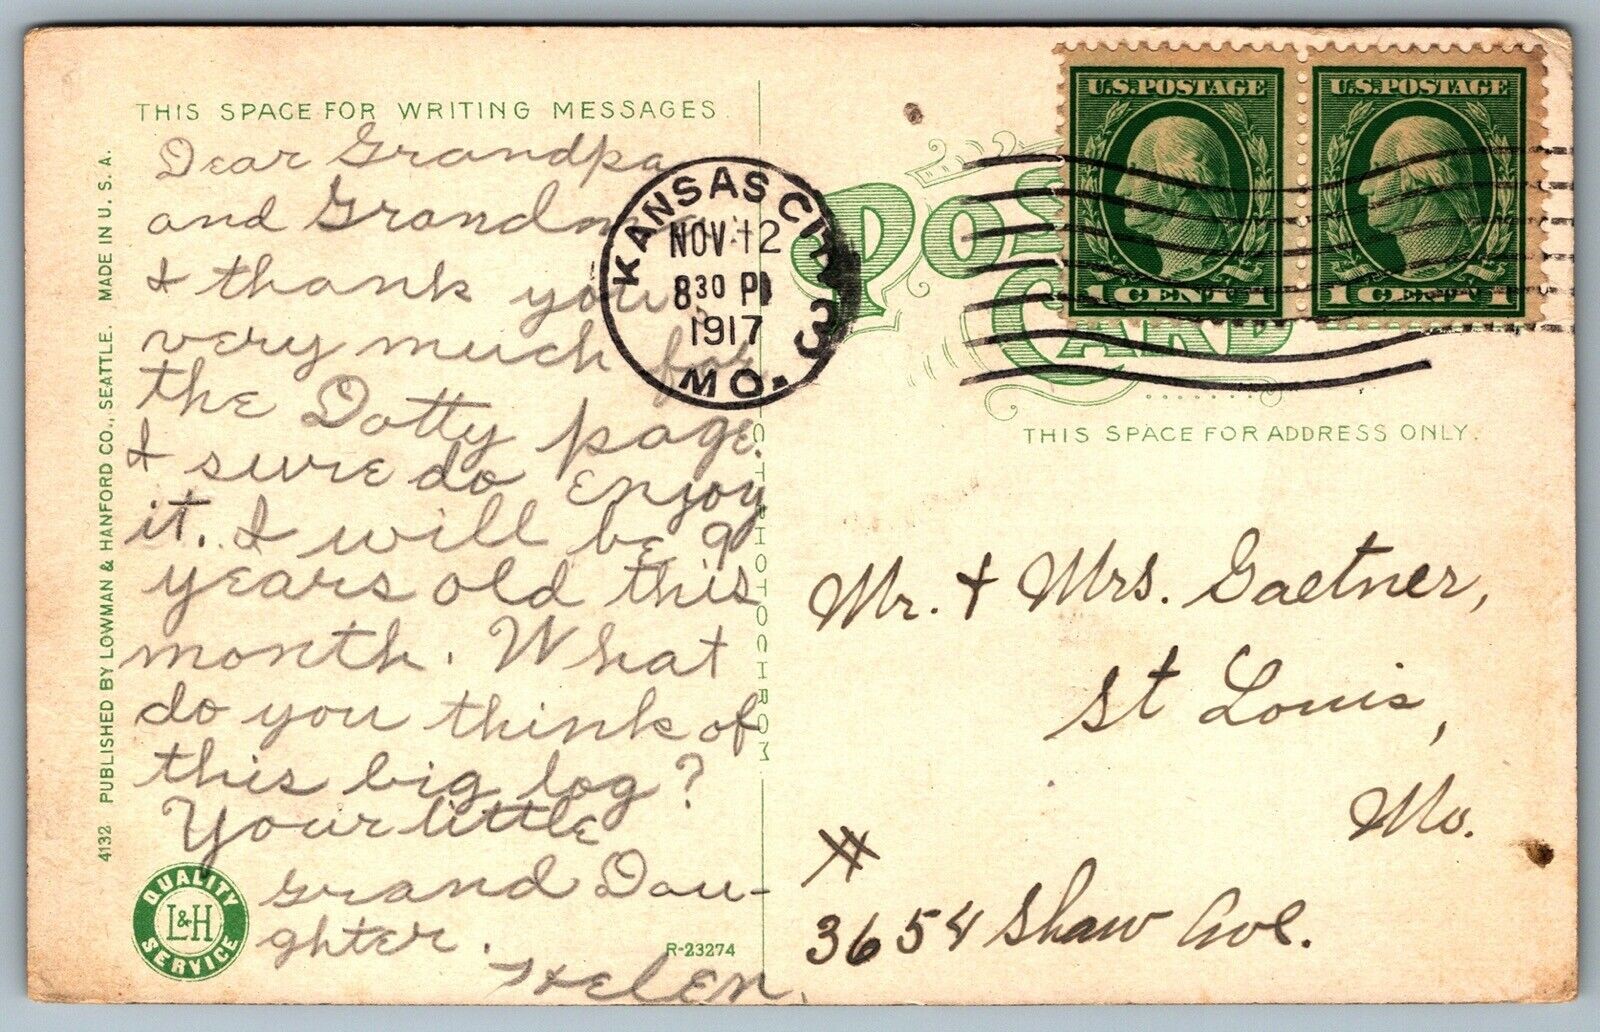 THIS SPACE FOR WRITING MESSAGES
Dear Grandpa
and Grandma
I thank you
very much for
the Dotty page
I sure do enjoy
it. I will be 9
years old this
month. What
do you think of
this big log?
Your little
grand Dau-
ghter.
Helen.
4132 PUBLISHED BY LOWMAN & HANFORD CO., SEATTLE. MADE IN U. S. A.
QUALITY
L&H
SERVICE
R-23274
C. T. PHOTOCHROM
KANSAS CITY
MO.
3
NOV 12
8 30 P
1917
POST
CARD
U.S. POSTAGE
1 CENT 1
U.S. POSTAGE
1 CENT 1
THIS SPACE FOR ADDRESS ONLY.
Mr. & Mrs. Gaetner,
St Louis,
Mo.
#
3654 Shaw Ave.